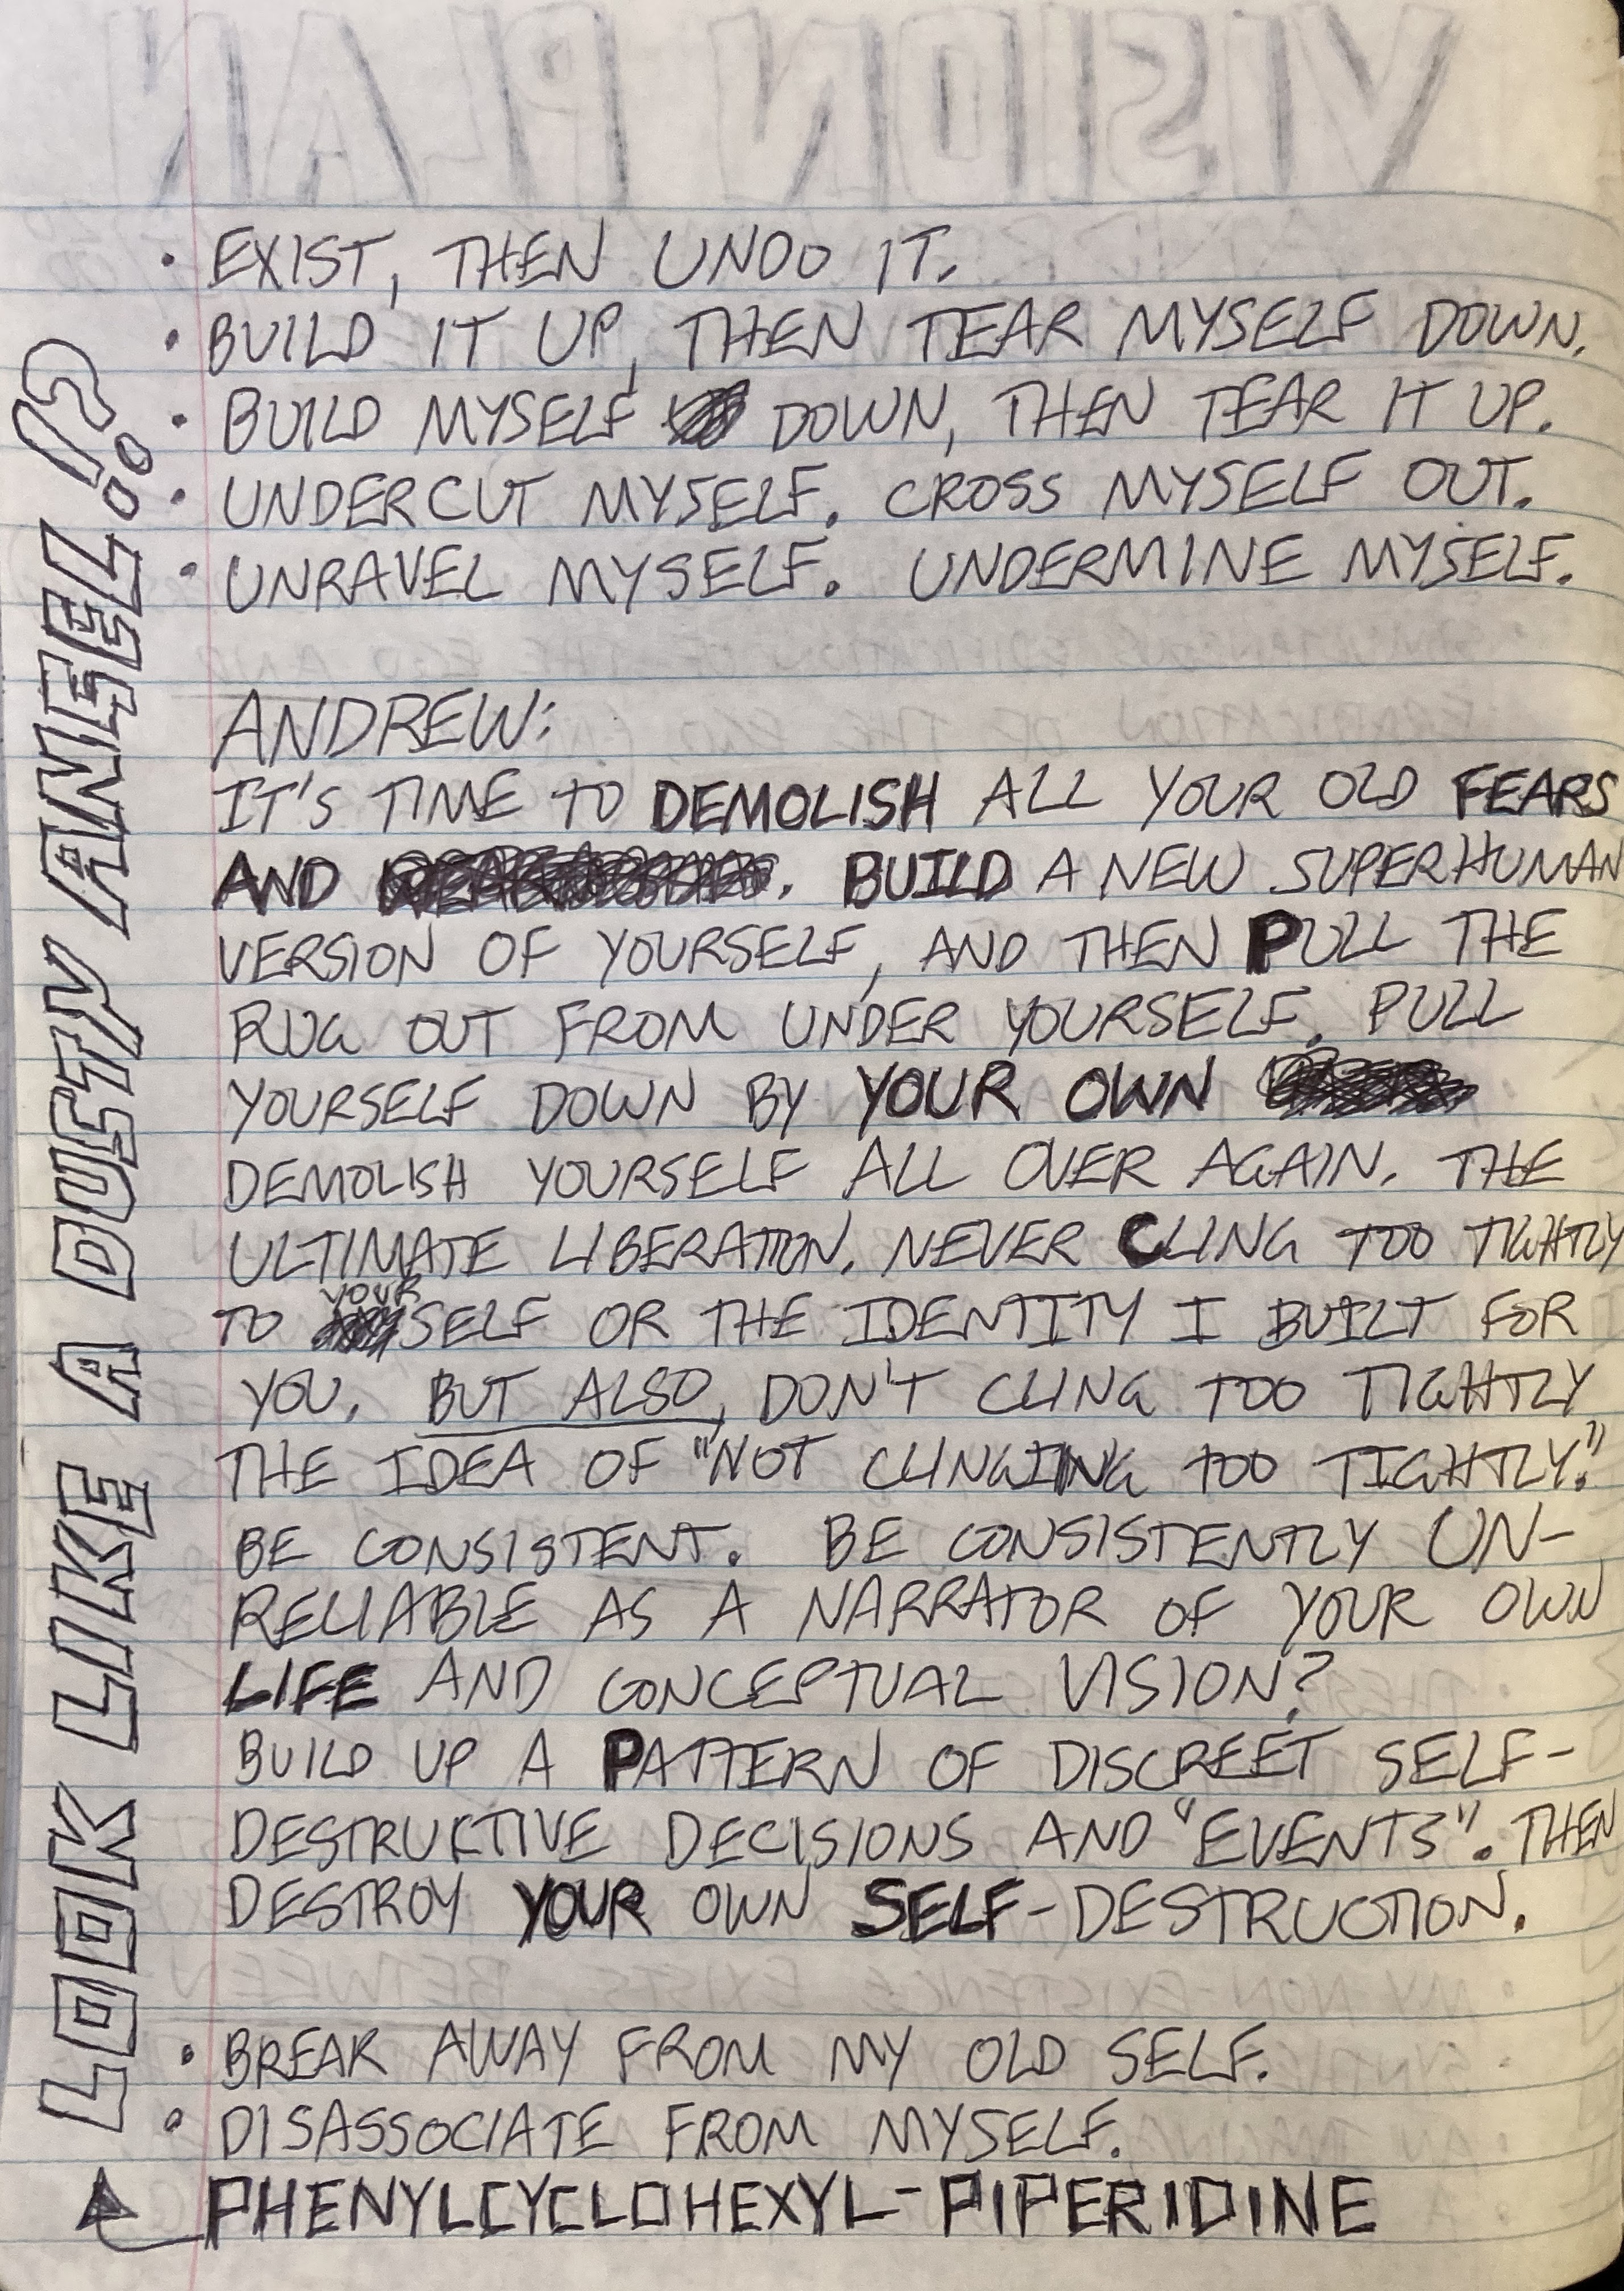 VISION PLAN
• EXIST, THEN UNDO IT.
• BUILD IT UP, THEN TEAR MYSELF DOWN.
• BUILD MYSELF DOWN, THEN TEAR IT UP.
• UNDERCUT MYSELF. CROSS MYSELF OUT.
• UNRAVEL MYSELF. UNDERMINE MYSELF.
ANDREW:
IT'S TIME TO DEMOLISH ALL YOUR OLD FEARS
AND . BUILD A NEW SUPERHUMAN
VERSION OF YOURSELF, AND THEN PULL THE
RUG OUT FROM UNDER YOURSELF. PULL
YOURSELF DOWN BY YOUR OWN
DEMOLISH YOURSELF ALL OVER AGAIN. THE
ULTIMATE LIBERATION. NEVER CLING TOO TIGHTLY
TO YOURSELF OR THE IDENTITY I BUILT FOR
YOU. BUT ALSO, DON'T CLING TOO TIGHTLY
THE IDEA OF "NOT CLINGING TOO TIGHTLY."
BE CONSISTENT. BE CONSISTENTLY UN-
RELIABLE AS A NARRATOR OF YOUR OWN
LIFE AND CONCEPTUAL VISION?
BUILD UP A PATTERN OF DISCREET SELF-
DESTRUCTIVE DECISIONS AND "EVENTS". THEN
DESTROY YOUR OWN SELF-DESTRUCTION.
• BREAK AWAY FROM MY OLD SELF.
• DISASSOCIATE FROM MYSELF.
PHENYLCYCLOHEXYL-PIPERIDINE
LOOK LIKE A DUSTY ANGEL!?